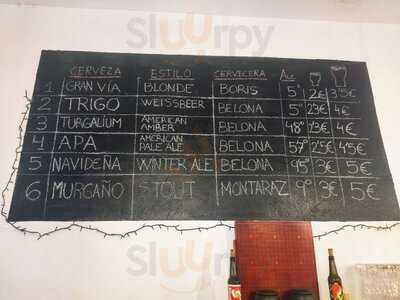 Sluurpy
CERVEZA ESTILO CERVECERA ALC
1 GRAN VÍA BLONDE BORIS 5° 2€ 3'5€
2 TRIGO WEISSBEER BELONA 5° 2'3€ 4€
3 TURGALIUM AMERICAN AMBER BELONA 4'8° 2'3€ 4€
4 APA AMERICAN PALE ALE BELONA 2'5€ 4'5€
5 NAVIDEÑA WINTER ALE BELONA 3€ 5€
6 MURGAÑO STOUT MONTARAZ 9° 3€ 5€
Sluurpy